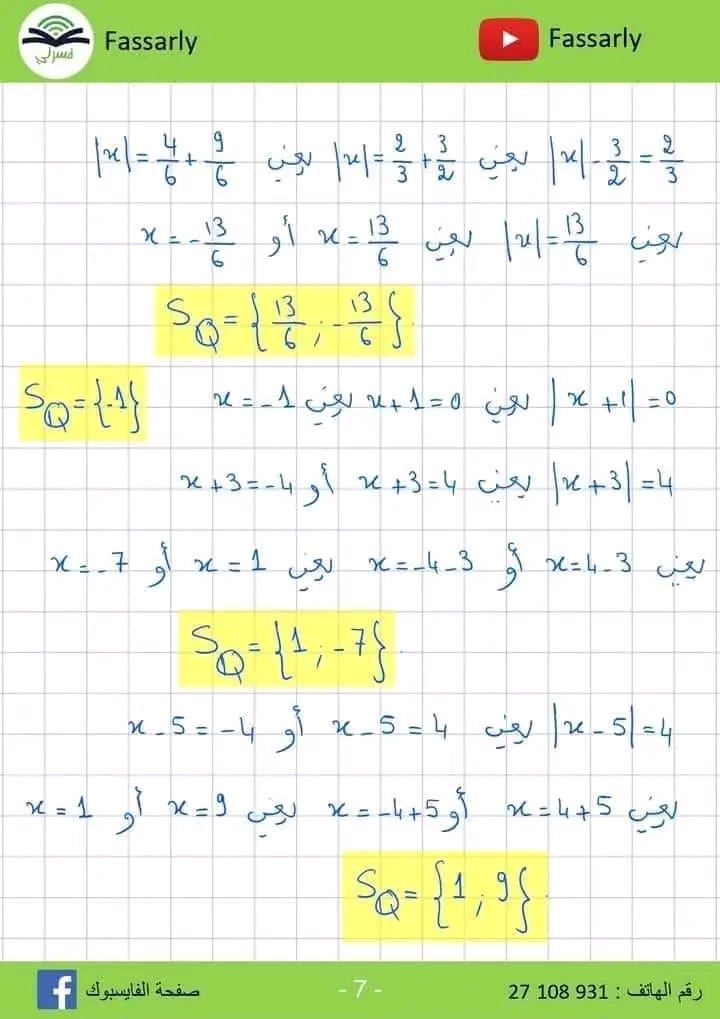 Fassarly
فسرلي
Fassarly
|x| - 3/2 = 2/3 يعني |x| = 2/3 + 3/2 يعني |x| = 4/6 + 9/6
يعني |x| = 13/6 يعني x = 13/6 أو x = -13/6
S_Q = {13/6 ; -13/6}.
|x + 1| = 0 يعني x + 1 = 0 يعني x = -1 S_Q = {-1}
|x + 3| = 4 يعني x + 3 = 4 أو x + 3 = -4
يعني x = 4 - 3 أو x = -4 - 3 يعني x = 1 أو x = -7
S_Q = {1 ; -7}.
|x - 5| = 4 يعني x - 5 = 4 أو x - 5 = -4
يعني x = 4 + 5 أو x = -4 + 5 يعني x = 9 أو x = 1
S_Q = {1 ; 9}.
رقم الهاتف : 931 108 27
- 7 -
صفحة الفايسبوك
f